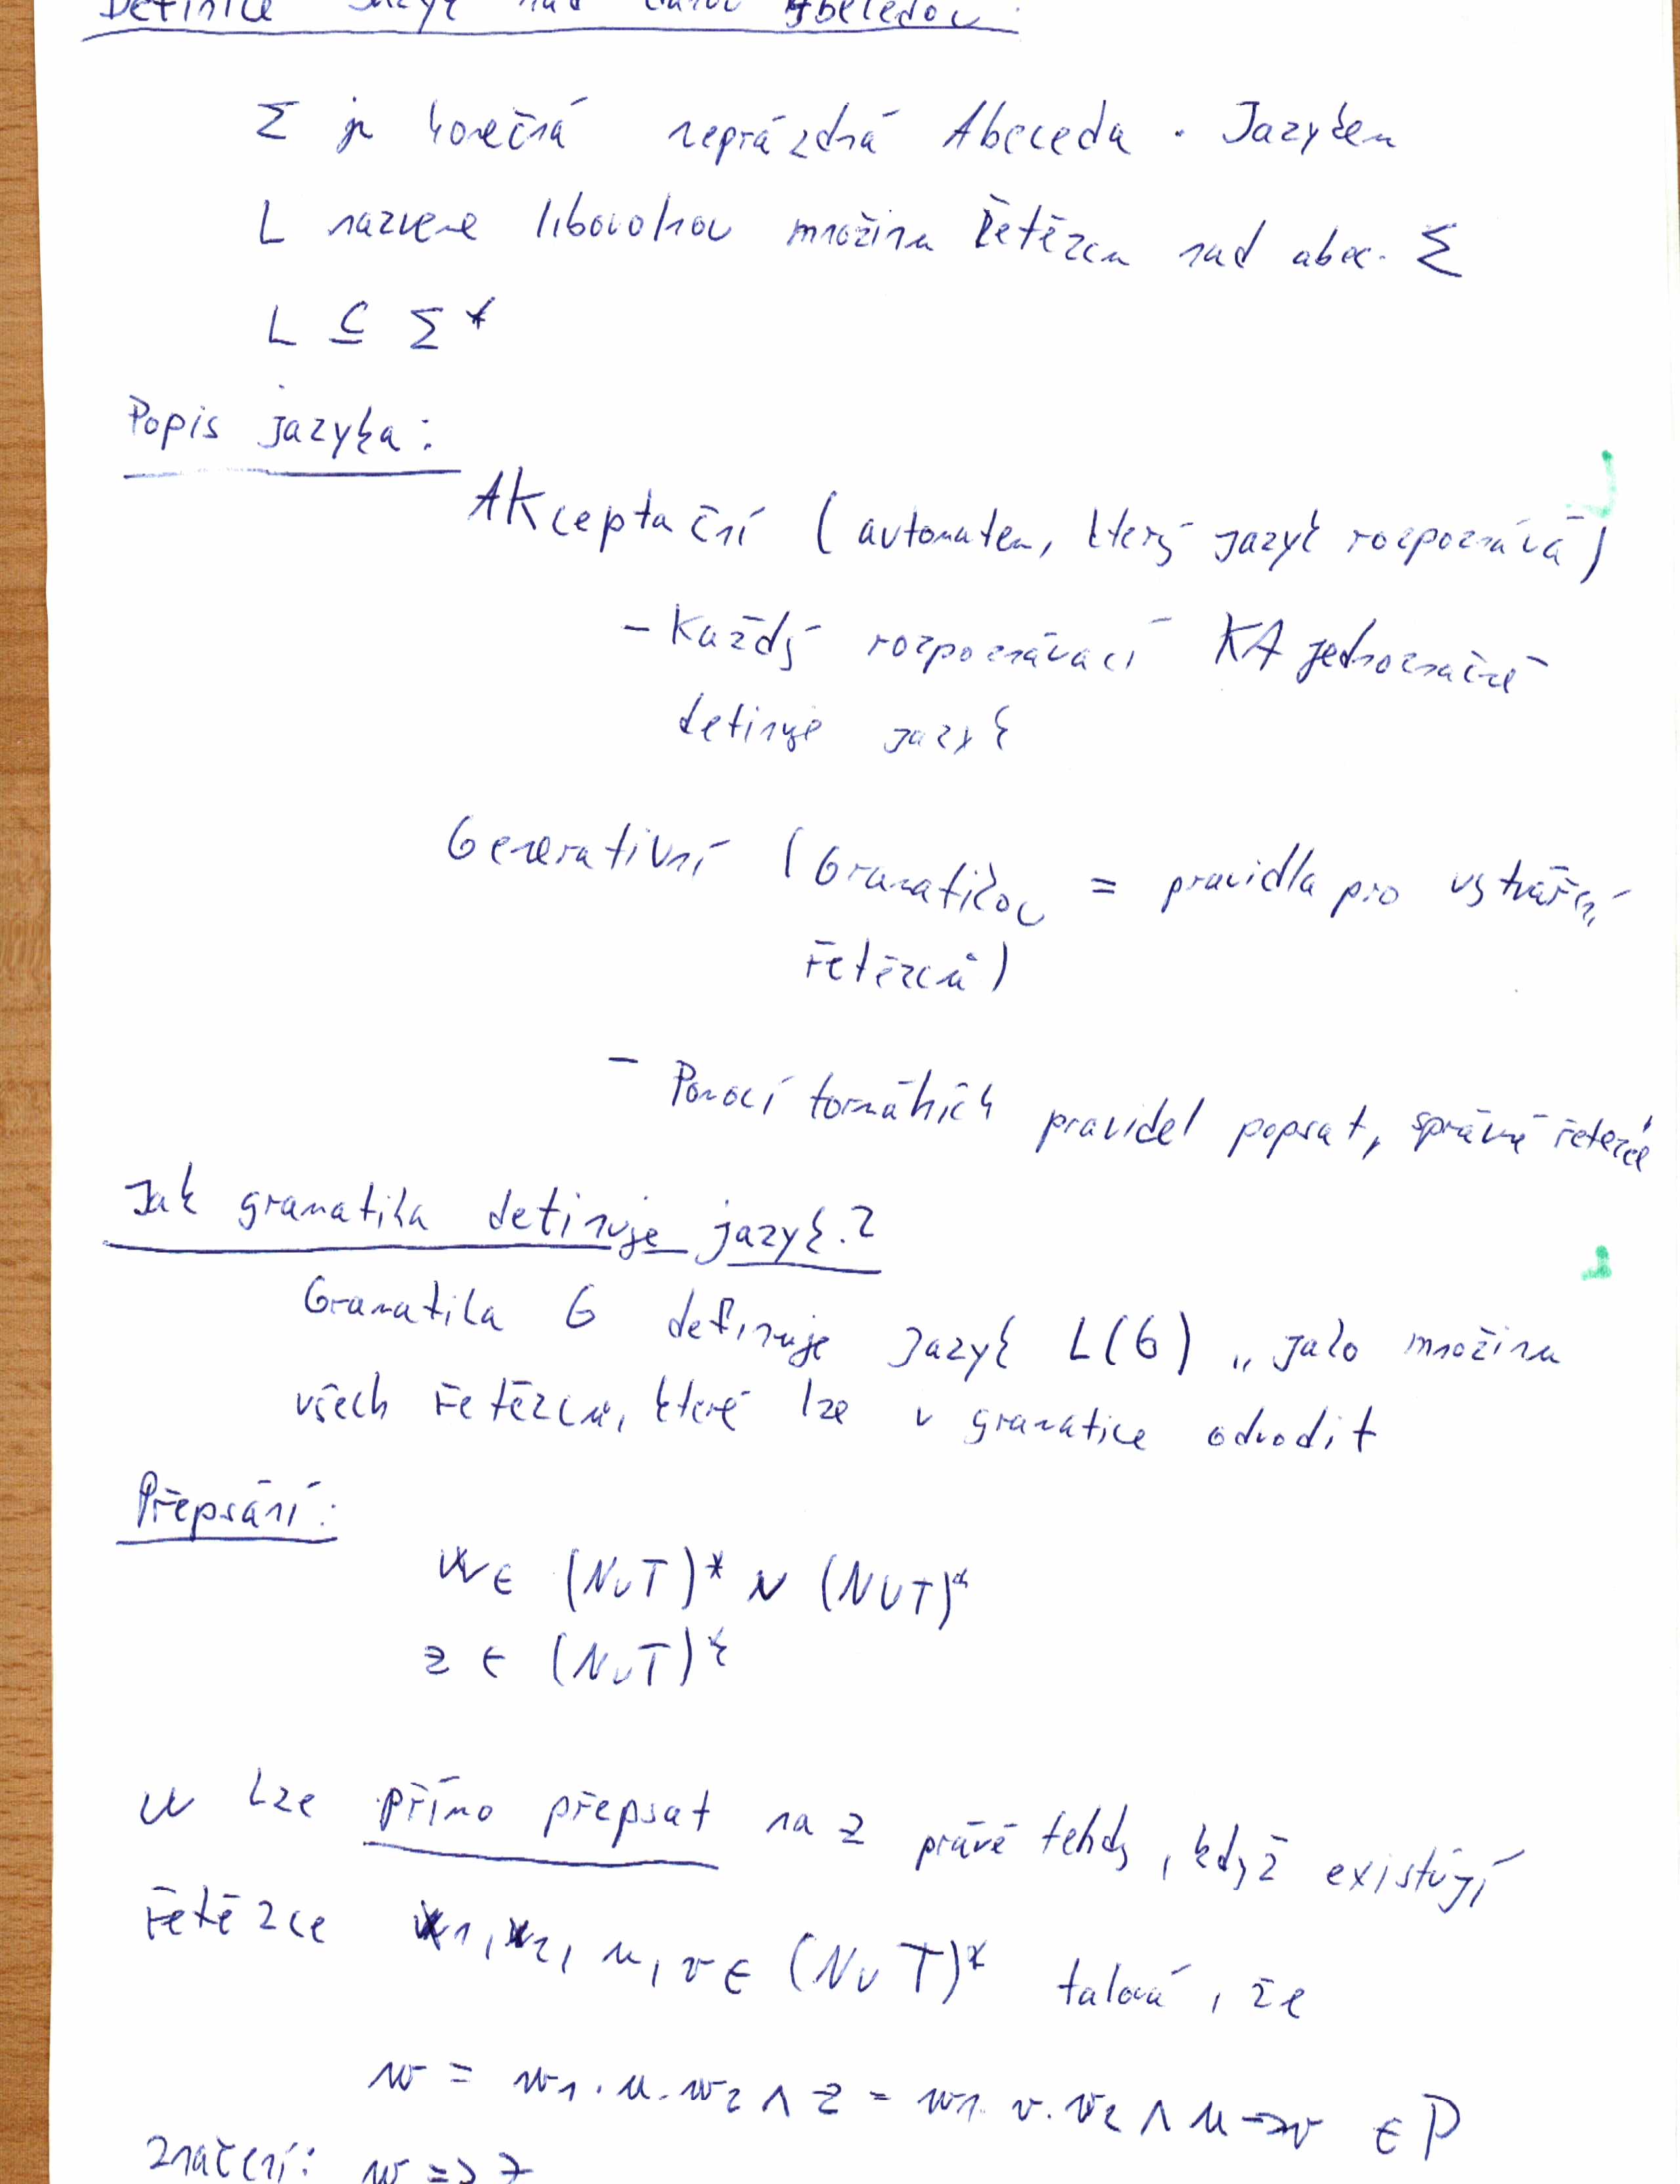 Definice jazyk nad danou abecedou:
Σ je konečná neprázdná Abeceda. Jazykem
L nazveme libovolnou množinu řetězcu nad abec. Σ
L ⊆ Σ*
Popis jazyka:
AKceptační (automatem, který jazyk rozpoznává)
- Každý rozpoznávací KA jednoznačně
definuje jazyk
Generativní (Gramatikou = pravidla pro vytváření
řetězců)
- Pomocí formálních pravidel popsat, správné řetězce
Jak gramatika definuje jazyk?
Gramatika G definuje jazyk L(G) „ jako množinu
všech řetězců, které lze v gramatice odvodit
Přepsání:
w ∈ (N∪T)* N (N∪T)*
z ∈ (N∪T)*
w lze přímo přepsat na z právě tehdy, když existují
řetězce w1, w2, u, v ∈ (N∪T)* taková, že
w = w1 . u . w2 ∧ z = w1 . v . w2 ∧ u → v ∈ P
Značení: w => z